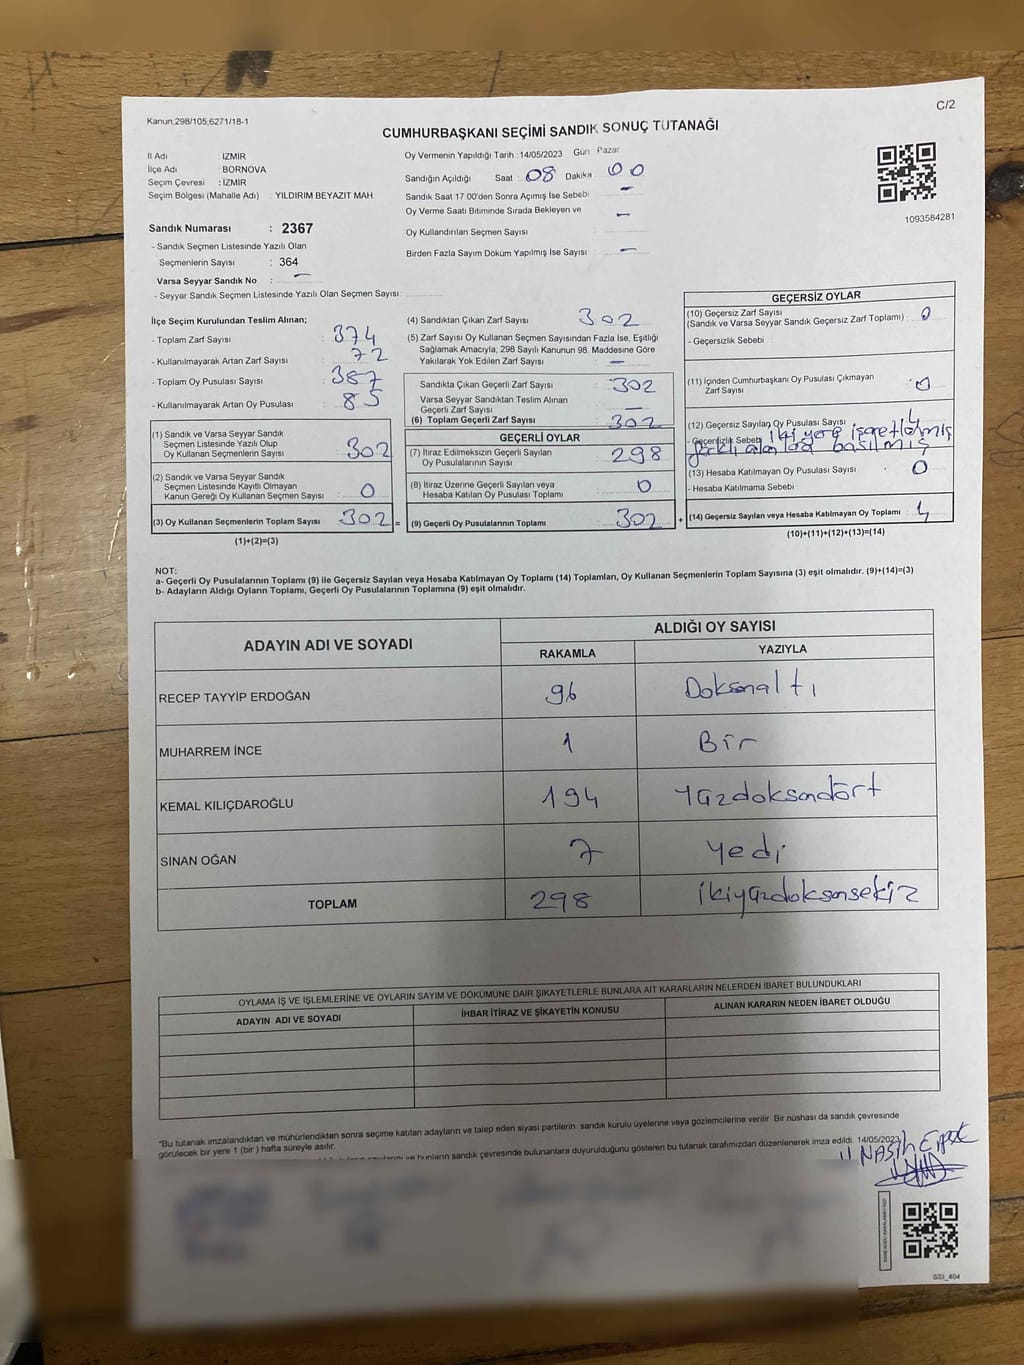 C/2
Kanun;298/105,6271/18-1
CUMHURBAŞKANI SEÇİMİ SANDIK SONUÇ TUTANAĞI
İl Adı İZMİR
İlçe Adı BORNOVA
Seçim Çevresi : İZMİR
Seçim Bölgesi (Mahalle Adı) : YILDIRIM BEYAZIT MAH
Oy Vermenin Yapıldığı Tarih : 14/05/2023 Gün Pazar
Sandığın Açıldığı Saat : 08 Dakika : 00
Sandık Saat 17:00'den Sonra Açımış İse Sebebi : –
Oy Verme Saati Bitiminde Sırada Bekleyen ve : –
Oy Kullandırılan Seçmen Sayısı
Birden Fazla Sayım Döküm Yapılmış İse Sayısı : –
1093584281
Sandık Numarası : 2367
- Sandık Seçmen Listesinde Yazılı Olan
Seçmenlerin Sayısı : 364
Varsa Seyyar Sandık No : –
- Seyyar Sandık Seçmen Listesinde Yazılı Olan Seçmen Sayısı:
İlçe Seçim Kurulundan Teslim Alınan;
- Toplam Zarf Sayısı : 374
- Kullanılmayarak Artan Zarf Sayısı : 72
- Toplam Oy Pusulası Sayısı : 387
- Kullanılmayarak Artan Oy Pusulası : 85
(1) Sandık ve Varsa Seyyar Sandık
Seçmen Listesinde Yazılı Olup
Oy Kullanan Seçmenlerin Sayısı : 302
(2) Sandık ve Varsa Seyyar Sandık
Seçmen Listesinde Kayıtlı Olmayan
Kanun Gereği Oy Kullanan Seçmen Sayısı : 0
(3) Oy Kullanan Seçmenlerin Toplam Sayısı : 302 =
(1)+(2)=(3)
(4) Sandıktan Çıkan Zarf Sayısı : 302
(5) Zarf Sayısı Oy Kullanan Seçmen Sayısından Fazla İse, Eşitliği
Sağlamak Amacıyla, 298 Sayılı Kanunun 98. Maddesine Göre
Yakılarak Yok Edilen Zarf Sayısı : –
Sandıkta Çıkan Geçerli Zarf Sayısı : 302
Varsa Seyyar Sandıktan Teslim Alınan
Geçerli Zarf Sayısı : –
(6) Toplam Geçerli Zarf Sayısı : 302
GEÇERLİ OYLAR
(7) İtiraz Edilmeksizin Geçerli Sayılan
Oy Pusulalarının Sayısı : 298
(8) İtiraz Üzerine Geçerli Sayılan veya
Hesaba Katılan Oy Pusulası Toplamı : 0
(9) Geçerli Oy Pusulalarının Toplamı : 302 +
GEÇERSİZ OYLAR
(10) Geçersiz Zarf Sayısı
(Sandık ve Varsa Seyyar Sandık Geçersiz Zarf Toplamı) : 0
- Geçersizlik Sebebi :
(11) İçinden Cumhurbaşkanı Oy Pusulası Çıkmayan
Zarf Sayısı : 0
(12) Geçersiz Sayılan Oy Pusulası Sayısı : 4
- Geçersizlik Sebebi iki yere işaretlenmiş
farklı alanlara basılmış
(13) Hesaba Katılmayan Oy Pusulası Sayısı : 0
- Hesaba Katılmama Sebebi
(14) Geçersiz Sayılan veya Hesaba Katılmayan Oy Toplamı : 4
(10)+(11)+(12)+(13)=(14)
NOT:
a- Geçerli Oy Pusulalarının Toplamı (9) ile Geçersiz Sayılan veya Hesaba Katılmayan Oy Toplamı (14) Toplamları, Oy Kullanan Seçmenlerin Toplam Sayısına (3) eşit olmalıdır. (9)+(14)=(3)
b- Adayların Aldığı Oyların Toplamı, Geçerli Oy Pusulalarının Toplamına (9) eşit olmalıdır.
ADAYIN ADI VE SOYADI ALDIĞI OY SAYISI
RAKAMLA YAZIYLA
RECEP TAYYİP ERDOĞAN 96 Doksanaltı
MUHARREM İNCE 1 Bir
KEMAL KILIÇDAROĞLU 194 Yüzdoksandört
SİNAN OĞAN 7 Yedi
TOPLAM 298 İkiyüzdoksansekiz
OYLAMA İŞ VE İŞLEMLERİNE VE OYLARIN SAYIM VE DÖKÜMÜNE DAİR ŞİKAYETLERLE BUNLARA AİT KARARLARIN NELERDEN İBARET BULUNDUKLARI
ADAYIN ADI VE SOYADI İHBAR İTİRAZ VE ŞİKAYETİN KONUSU ALINAN KARARIN NEDEN İBARET OLDUĞU
"Bu tutanak imzalandıktan ve mühürlendikten sonra seçime katılan adayların ve talep eden siyasi partilerin sandık kurulu üyelerine veya gözlemcilerine verilir. Bir nüshası da sandık çevresinde
görülecek bir yere 1 (bir) hafta süreyle asılır.
ve bunların sandık çevresinde bulunanlara duyurulduğunu gösteren bu tutanak tarafımızdan düzenlenerek imza edildi. 14/05/2023
SSI_404